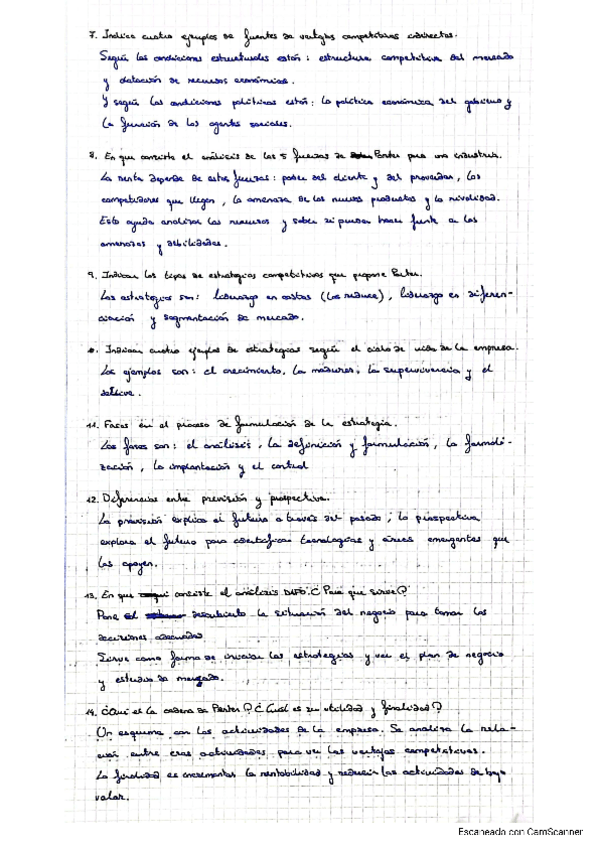 7. Indica cuatro ejemplos de fuentes de ventajas competitivas indirectas.
Según las condiciones estructurales están: estructura competitiva del mercado
y dotación de recursos económicos.
Y según las condiciones políticas están: la política económica del gobierno y
la función de los agentes sociales.
8. En que consiste el análisis de las 5 fuerzas de Porter para una industria.
La renta depende de estas fuerzas: poder del cliente y del proveedor, los
competidores que llegan, la amenaza de los nuevos productos y la rivalidad.
Esto ayuda analizar los recursos y saber si puedan hacer frente a las
amenazas y debilidades.
9. Indican los tipos de estrategias competitivas que propone Porter.
Las estrategias son: liderazgo en costes (los reduce), liderazgo en diferen-
ciación y segmentación de mercado.
Indican cuatro ejemplos de estrategias según el ciclo de vida de la empresa.
Los ejemplos son: el crecimiento, la madurez, la supervivencia y el
declive.
11. Fases en el proceso de formulación de la estrategia.
Las fases son: el análisis, la definición y formulación, la formali-
zación, la implantación y el control
12. Diferencias entre previsión y prospectiva.
La previsión explica el futuro a través del pasado; la prospectiva
explora el futuro para identificar tecnologías y áreas emergentes que
las apoyen.
13. En que consiste el análisis DAFO. ¿Para que sirve?
Pone al descubierto la situación del negocio para tomar las
decisiones adecuadas.
Sirve como forma de iniciar las estrategias y ver el plan de negocio
y estudio de mercado.
14. ¿Qué es la cadena de Porter? ¿Cuál es su utilidad y finalidad?
Un esquema con las actividades de la empresa. Se analiza la rela-
ción entre esas actividades para ver las ventajas competitivas.
La finalidad es incrementar la rentabilidad y reducir las actividades de bajo
valor.
Escaneado con CamScanner